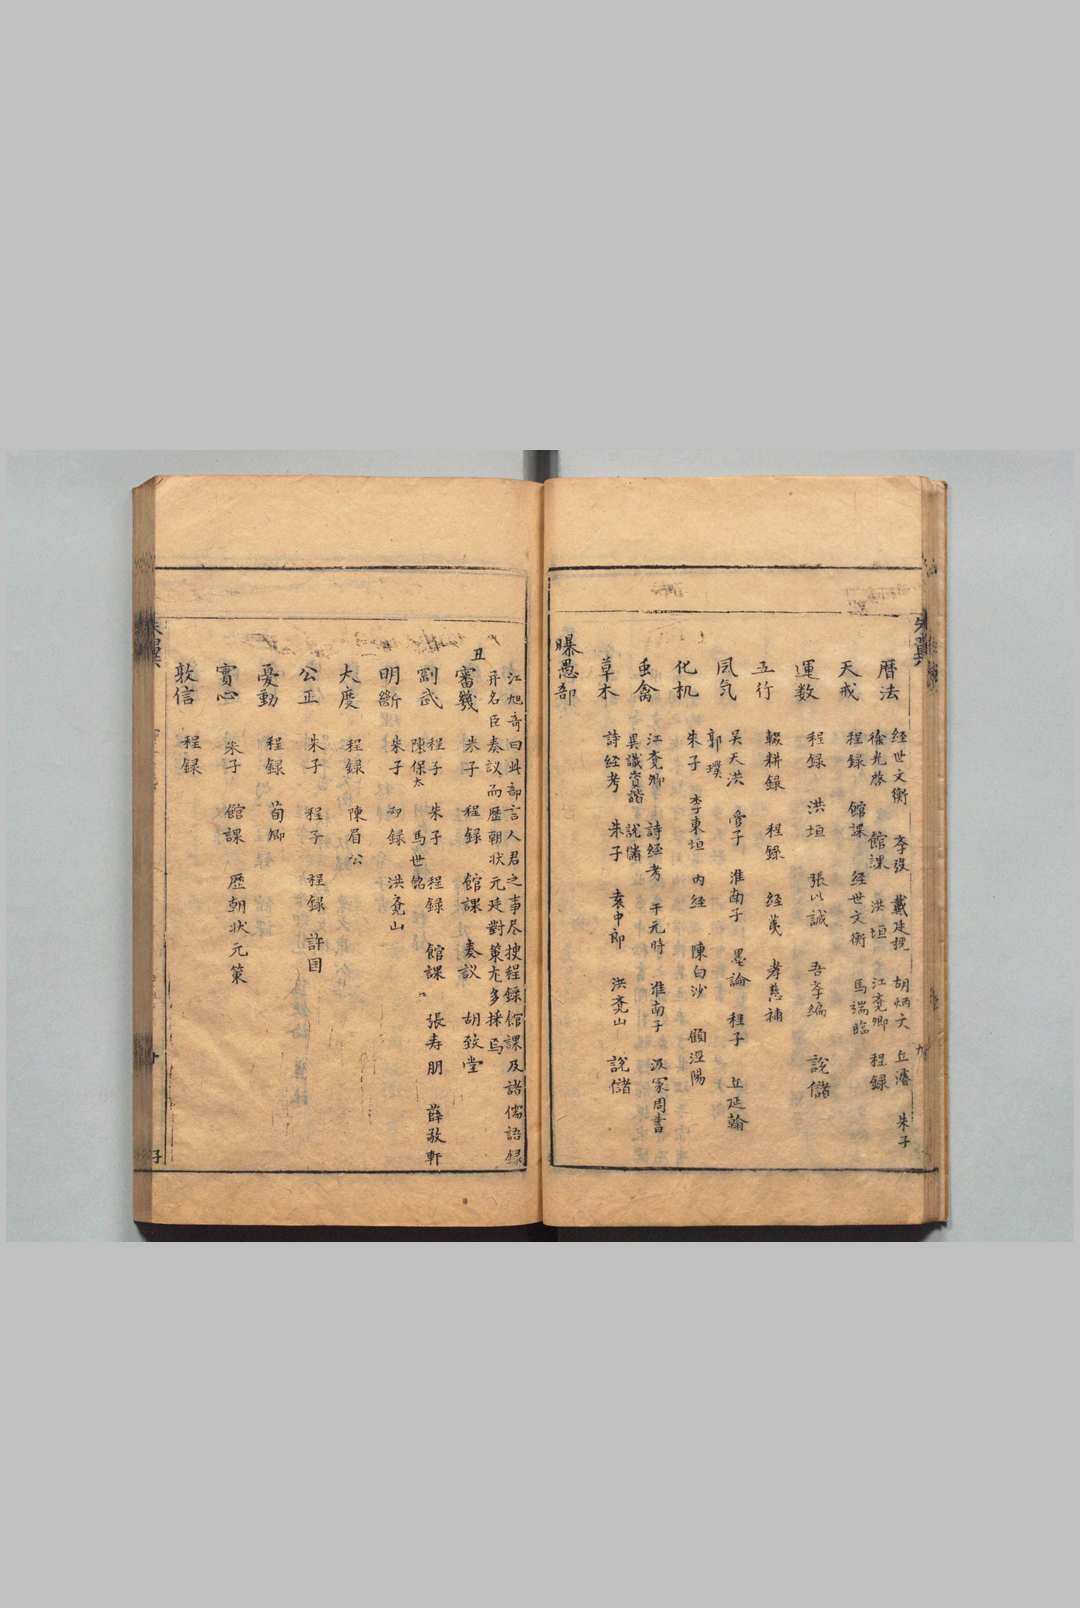 暦法
経世文衡 李發 戴廷㮣 胡炳文 丘濬 朱子
徐光啓 館課 洪垣 江堯卿 程録
天戒 程録 館課 経世文衡 馬端臨
運数 程録 洪垣 張以誠 吾学編 說儲
五行 輟耕録 程録 経羙 孝慈補
风气
吴天洪 管子 淮南子 墨論 程子 丘延翰
郭璞
化机 朱子 李東垣 内経 陳白沙 顧涇陽
䖝禽
江堯卿 詩経考 干元時 淮南子 汲冢周書
異識資諧 說儲
草木 詩経考 朱子 袁中郎 洪堯山 說儲
曝愚部
江旭奇曰此部言人君之事尽搜程録館課及諸儒語録
并名臣奏议而歴朝状元廷對策尤多採焉
丑
審幾 朱子 程録 館課 奏议 胡致堂
劉武
程子 朱子 程録 館課 張寿朋 薛敬軒
陳保太 馬世銘
明斷 朱子 知録 洪堯山
大度 程録 陳眉公
公正 朱子 程子 程録 許国
憂動 程録 荀卿
實心 朱子 館課 歴朝状元策
敦信 程録
朱翼
子